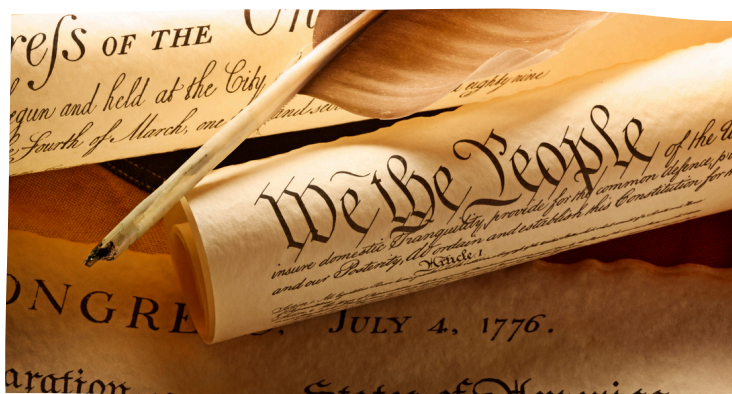 reſs OF THE Un
egun and held at the City
Fourth of March, one and seve eighty nine
We the People of the U
insure domestic Tranquility, provide for the common defence, pr
and our Posterity, do ordain and establish this Constitution for
Article. I.
ONGRE S, JULY 4, 1776.
aration States of America